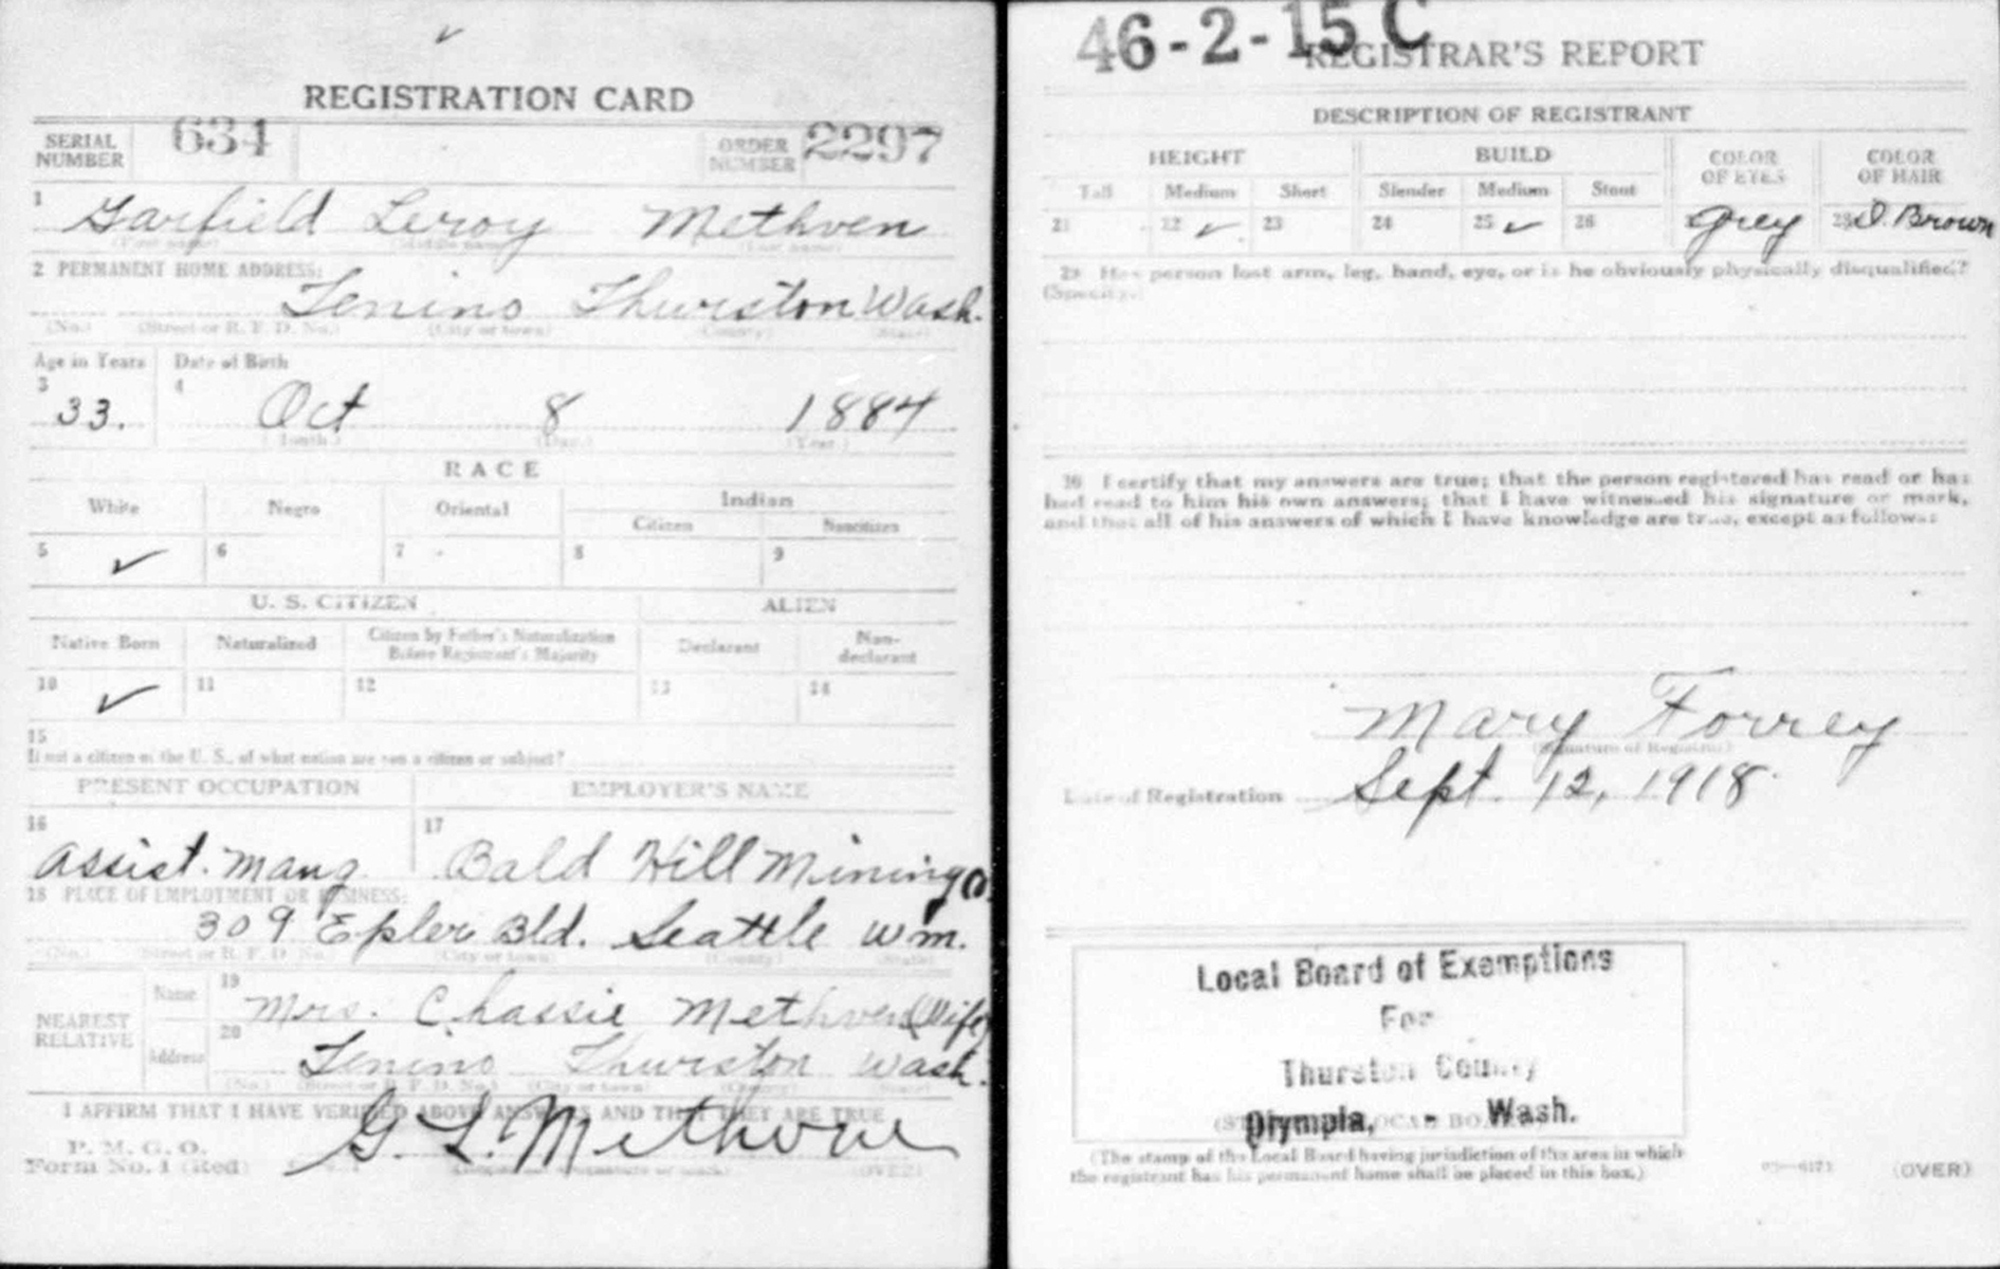 REGISTRATION CARD
SERIAL NUMBER 634 ORDER NUMBER 2297
1 Garfield Leroy Methven
(First name) (Middle name) (Last name)
2 PERMANENT HOME ADDRESS:
Tenino Thurston Wash.
(No.) (Street or R. F. D. No.) (City or town) (County) (State)
Age in Years Date of Birth
3 33. 4 Oct 8 1884
(Month.) (Day.) (Year.)
RACE
White Negro Oriental Indian
Citizen Noncitizen
5 ✓ 6 7 8 9
U. S. CITIZEN ALIEN
Native Born Naturalized Citizen by Father's Naturalization Before Registrant's Majority Declarant Non-declarant
10 ✓ 11 12 13 14
15
If not a citizen of the U. S., of what nation are you a citizen or subject?
PRESENT OCCUPATION EMPLOYER'S NAME
16 Assist. Mang 17 Bald Hill Mining Co
18 PLACE OF EMPLOYMENT OR BUSINESS:
309 Epler Bld. Seattle Wm.
(No.) (Street or R. F. D. No.) (City or town) (County) (State)
NEAREST RELATIVE
Name 19 Mrs. Chassie Methven (Wife)
Address 20 Tenino Thurston Wash.
(No.) (Street or R. F. D. No.) (City or town) (County) (State)
I AFFIRM THAT I HAVE VERIFIED ABOVE ANSWERS AND THAT THEY ARE TRUE
P. M. G. O.
Form No. 1 (Red) G. L. Methven (OVER)
46-2-15 C
REGISTRAR'S REPORT
DESCRIPTION OF REGISTRANT
HEIGHT BUILD COLOR OF EYES COLOR OF HAIR
Tall Medium Short Slender Medium Stout
21 22 ✓ 23 24 25 ✓ 26 Grey 28 D. Brown
29 Has person lost arm, leg, hand, eye, or is he obviously physically disqualified?
(Specify.)
30 I certify that my answers are true; that the person registered has read or has
had read to him his own answers; that I have witnessed his signature or mark,
and that all of his answers of which I have knowledge are true, except as follows:
Mary Forrey
(Signature of Registrar)
Date of Registration Sept. 12, 1918.
Local Board of Exemptions
For
Thurston County
Olympia, - Wash.
(The stamp of the Local Board having jurisdiction of the area in which
the registrant has his permanent home shall be placed in this box.)
03—6171 (OVER)